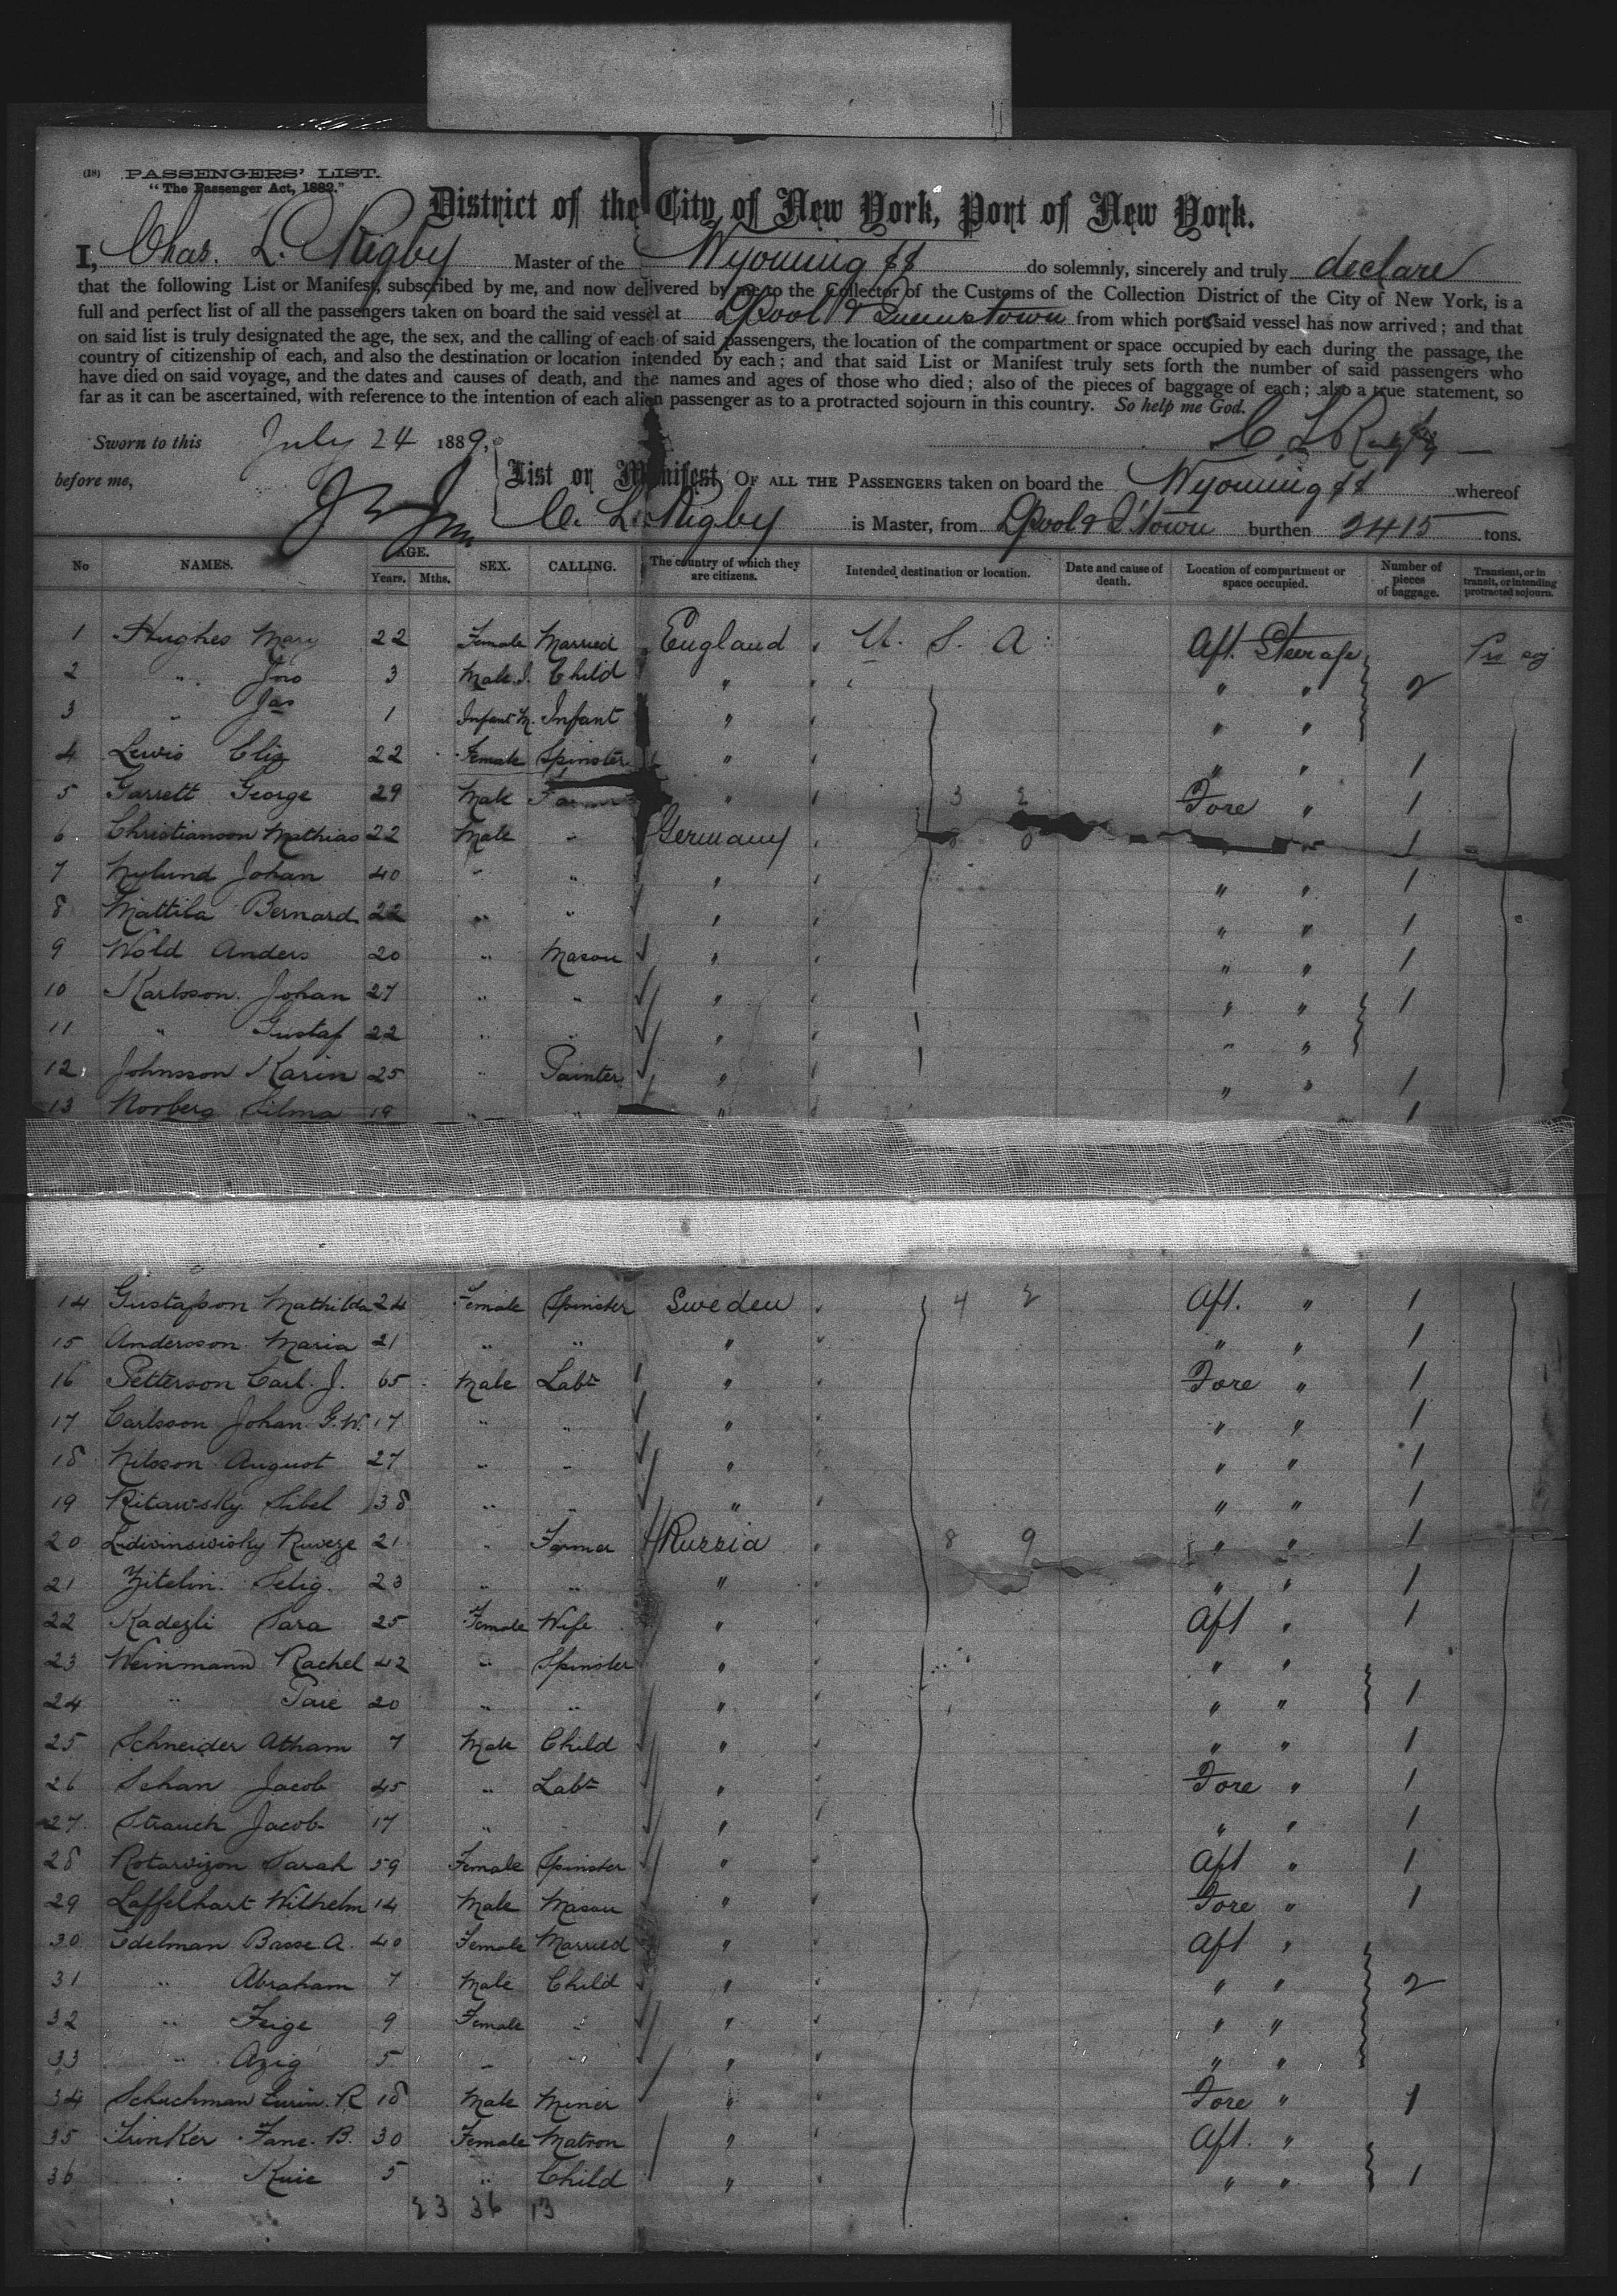 (18) PASSENGERS' LIST.
"The Passenger Act, 1882."
District of the City of New York, Port of New York.
I, Chas. L. Rigby Master of the Wyoming SS do solemnly, sincerely and truly declare
that the following List or Manifest, subscribed by me, and now delivered by me to the Collector of the Customs of the Collection District of the City of New York, is a
full and perfect list of all the passengers taken on board the said vessel at LPool & Queenstown from which ports said vessel has now arrived; and that
on said list is truly designated the age, the sex, and the calling of each of said passengers, the location of the compartment or space occupied by each during the passage, the
country of citizenship of each, and also the destination or location intended by each; and that said List or Manifest truly sets forth the number of said passengers who
have died on said voyage, and the dates and causes of death, and the names and ages of those who died; also of the pieces of baggage of each; also a true statement, so
far as it can be ascertained, with reference to the intention of each alien passenger as to a protracted sojourn in this country. So help me God.
Sworn to this July 24 1889, C. L. Rigby
before me, List or Manifest OF ALL THE PASSENGERS taken on board the Wyoming SS whereof
C. L. Rigby is Master, from LPool & Q'town burthen 2415 tons.
No NAMES. AGE. Years. Mths. SEX. CALLING. The country of which they are citizens. Intended destination or location. Date and cause of death. Location of compartment or space occupied. Number of pieces of baggage. Transient, or in transit, or intending protracted sojourn.
1 Hughes Mary 22 Female Married England U. S. A Aft. Steerage Pro soj
2 " Jno 3 Male Child " " " 2
3 " Jas 1 Infant M. Infant " " "
4 Lewis Eliz 22 Female Spinster " " " 1
5 Garrett George 29 Male Farmer " 3 2 Fore " 1
6 Christianson Mathias 22 Male " Germany 1
7 Nylund Johan 40 " " " " " 1
8 Mattila Bernard 22 " " " " " 1
9 Wold Anders 20 " Mason " " " 1
10 Karlsson Johan 27 " " " " " 1
11 " Gustaf 22 " " " " "
12 Johnsson Karin 25 " Painter " " " 1
13 Norberg Silma 19 " " " 1
14 Gustafsson Mathilda 24 Female Spinster Sweden 4 2 Aft. " 1
15 Andersson Maria 21 " " " " " 1
16 Petterson Carl. J. 65 Male Labr " Fore " 1
17 Carlsson Johan G. W. 17 " " " " " 1
18 Nilsson August 27 " " " " " 1
19 Ritawsky Sibel 38 " " " " " 1
20 Ruweze 21 " Farmer Russia 8 9 " " 1
21 Zitelin Selig 23 " " " " " 1
22 Kadezli Sara 25 Female Wife " Aft " 1
23 Weinmann Rachel 42 " Spinster " " "
24 " 20 " " " " " 1
25 Schneider Atham 7 Male Child " " " 1
26 Schan Jacob 45 " Labr " Fore " 1
27 Strauch Jacob 17 " " " " 1
28 Rotarvizon Sarah 59 Female Spinster " Aft " 1
29 Laffelhart Wilhelm 14 Male Mason " Fore " 1
30 Edelman Basse A. 40 Female Married " Aft "
31 " Abraham 7 Male Child " " " 2
32 " Feige 9 Female " " " "
33 " Azig 5 " " " " "
34 Schuchman R 18 Male Miner " Fore " 1
35 Trinker Fane. B. 30 Female Matron " Aft. "
36 " Ruie 5 " Child " " " 1
23 36 13